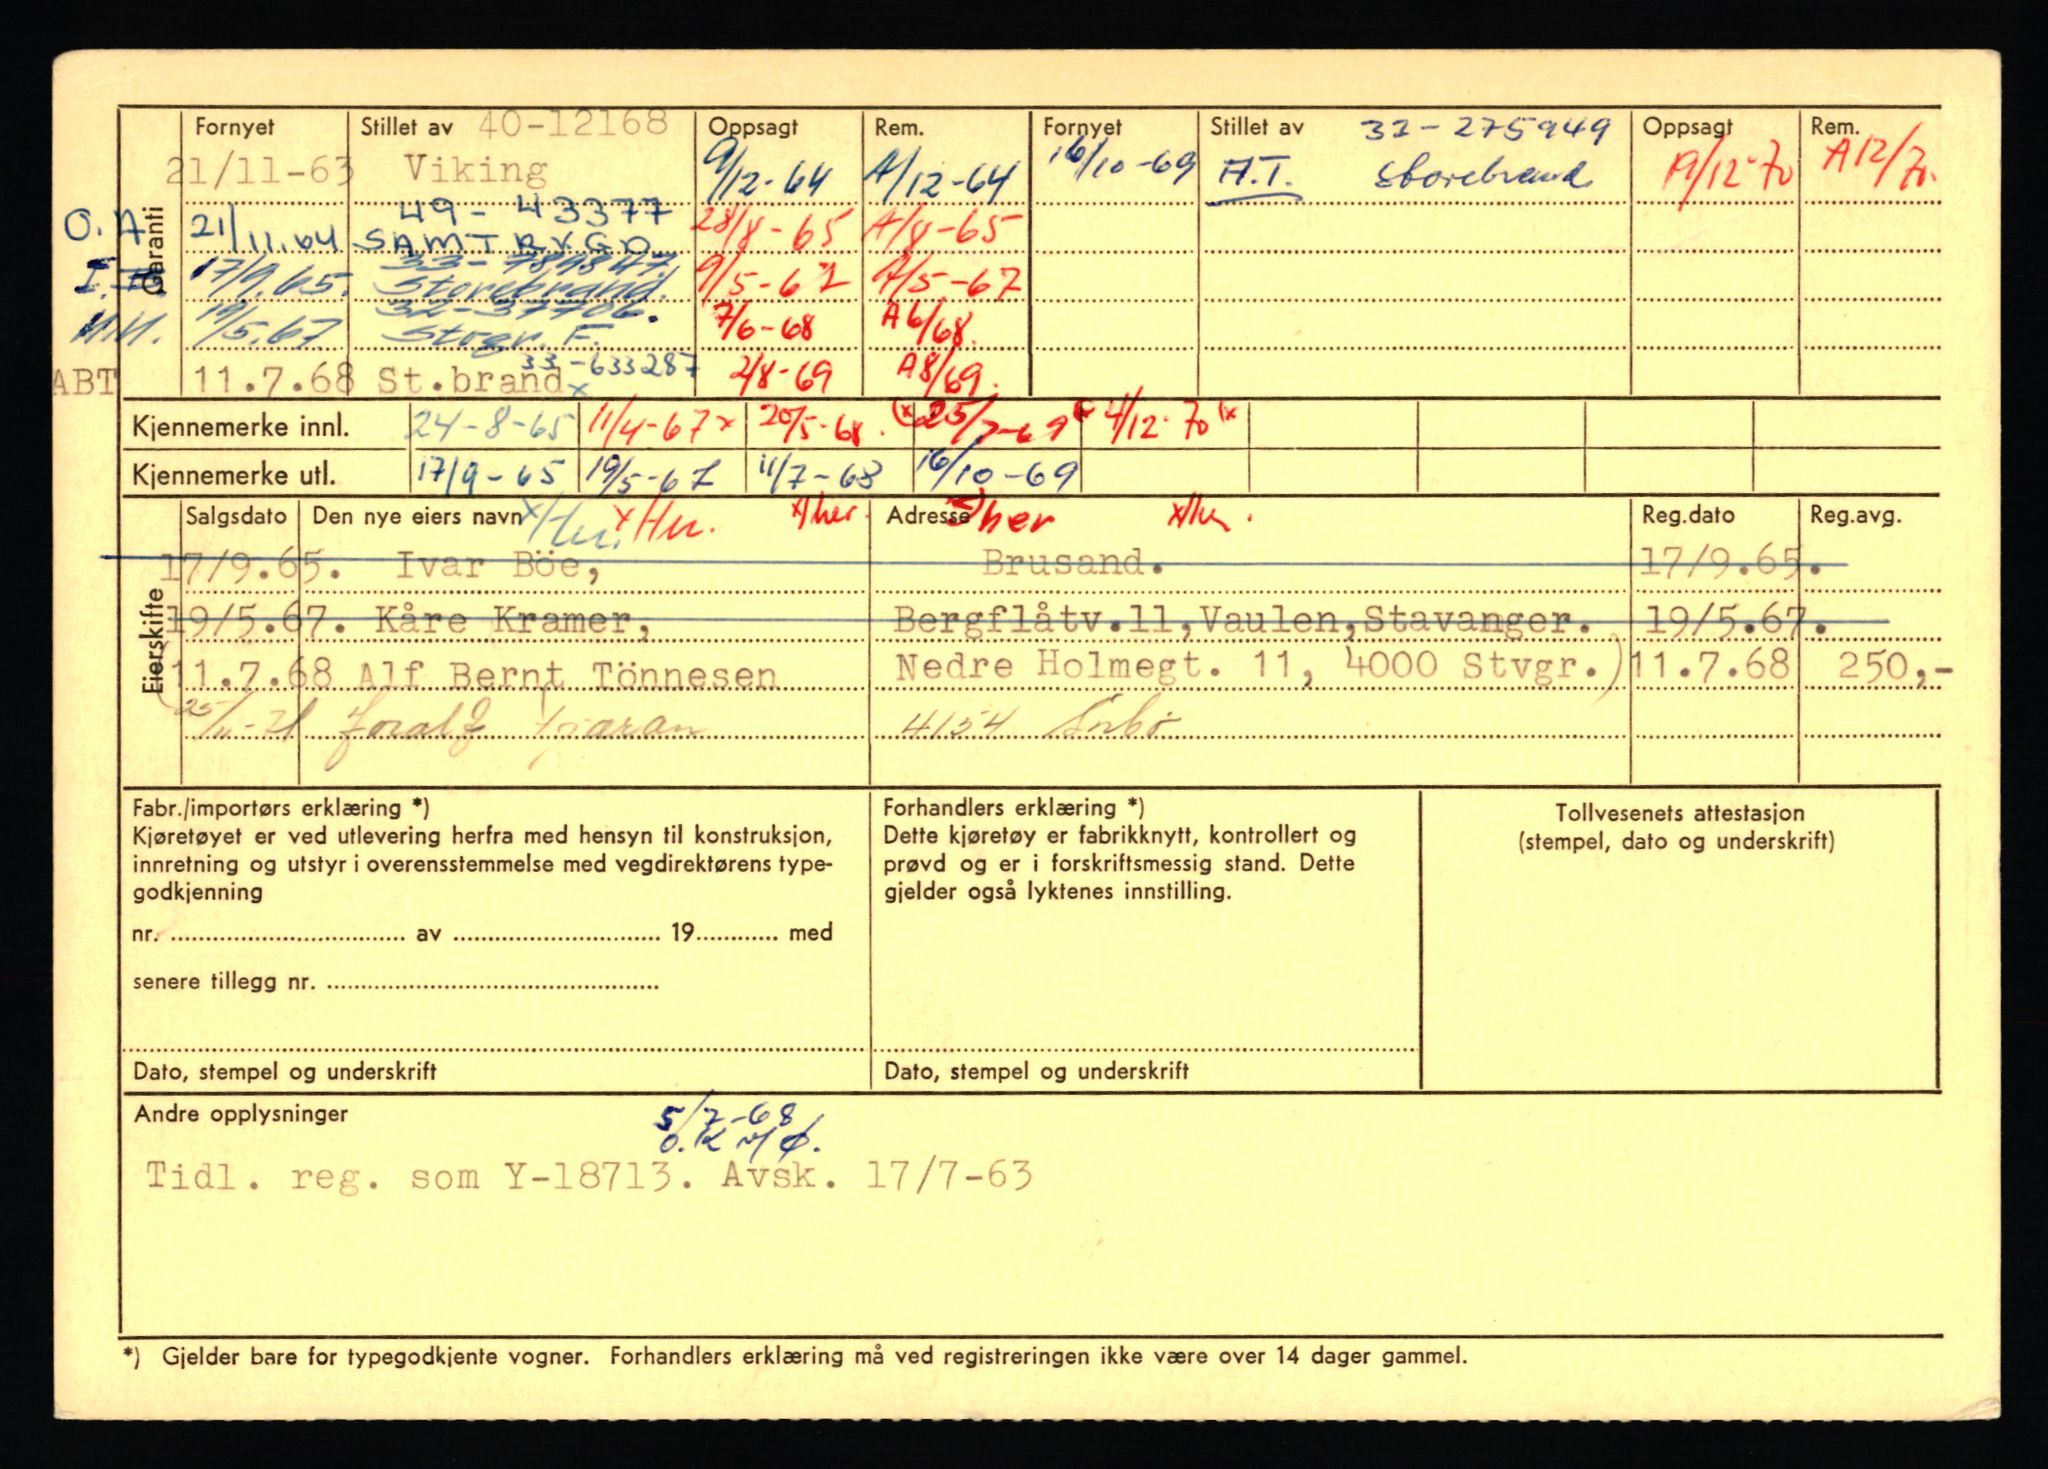 Garanti
Fornyet Stillet av 40-12168 Oppsagt Rem. Fornyet Stillet av 32-275949 Oppsagt Rem.
21/11-63 Viking 9/12-64 A/12-64 16/10-69 A.T. Storebrand 19/12-70 A12/70.
49-43377
O.A 21/11.64 SAMTRYGD 28/8-65 A/8-65
33-
17/9.65. Storebrand. 9/5-67 A/5-67
32-37706.
H.H. 19/5.67 Stogr. F. 7/6-68 A6/68.
33-633287
ABT 11.7.68 St.brand x 2/8-69 A8/69.
Kjennemerke innl. 24-8-65 11/4-67 x 20/5-68. (x 25/7-69 4/12-70 (x
Kjennemerke utl. 17/9-65 19/5-67 11/7-68 16/10-69
Eierskifte
Salgsdato Den nye eiers navn x/Hu. x/Hu. x/her. Adresse x/her Reg.dato Reg.avg.
17/9.65. Ivar Böe, Brusand. 17/9.65.
19/5.67. Kåre Kramer, Bergflåtv.11,Vaulen,Stavanger. 19/5.67.
11.7.68 Alf Bernt Tönnesen Nedre Holmegt. 11, 4000 Stvgr.) 11.7.68 250,-
4154
Fabr./importørs erklæring *)
Kjøretøyet er ved utlevering herfra med hensyn til konstruksjon,
innretning og utstyr i overensstemmelse med vegdirektørens type-
godkjenning
nr. ............ av ............ 19............ med
senere tillegg nr. ............
Dato, stempel og underskrift
Forhandlers erklæring *)
Dette kjøretøy er fabrikknytt, kontrollert og
prøvd og er i forskriftsmessig stand. Dette
gjelder også lyktenes innstilling.
Dato, stempel og underskrift
Tollvesenets attestasjon
(stempel, dato og underskrift)
Andre opplysninger
5/7-68
O.K v/Ø.
Tidl. reg. som Y-18713. Avsk. 17/7-63
*) Gjelder bare for typegodkjente vogner. Forhandlers erklæring må ved registreringen ikke være over 14 dager gammel.